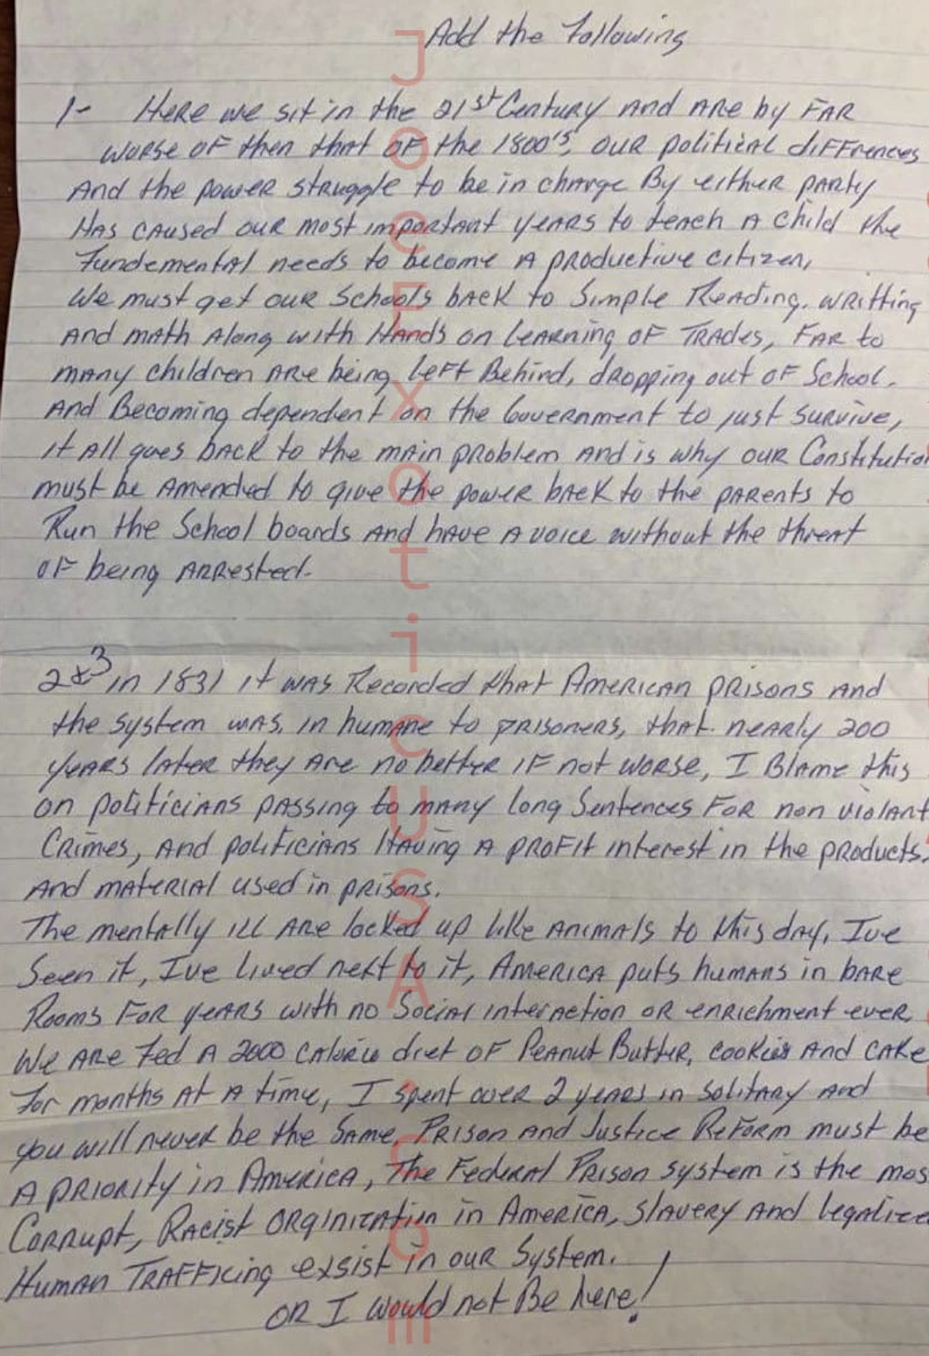 Add the Following
1- Here we sit in the 21st Century and are by far
worse of then that of the 1800's, our political diffrences
And the power struggle to be in charge By either party
Has caused our most important years to teach a child the
Fundemental needs to become a productive citizen,
We must get our Schools back to Simple Reading, writting
And math Along with Hands on Learning of Trades, Far to
many children are being Left Behind, dropping out of School.
And Becoming dependent on the Government to just survive,
it All goes back to the main problem and is why our Constitution
must be Amended to give the power back to the parents to
Run the School boards And have a voice without the threat
of being arrested.
2&3 in 1831 it was Recorded that American prisons and
the system was, in humane to prisoners, that nearly 200
years later they are no better if not worse, I Blame this
on politicians passing to many long Sentences For non violant
Crimes, And politicians Having a profit interest in the products,
And material used in prisons.
The mentally ill are locked up like animals to this day, Ive
Seen it, Ive lived next to it, America puts humans in bare
Rooms For years with no Social interaction or enrichment ever,
We are Fed a 2000 calorie diet of Peanut Butter, cookies and cake
For months at a time, I spent over 2 years in solitary and
you will never be the Same, Prison and Justice Reform must be
A priority in America, The Federal Prison system is the mos
Corrupt, Racist Orginization in America, slavery and legalize
Human Trafficing exsist in our System.
OR I would not Be here!
JoeExoticUSA.com